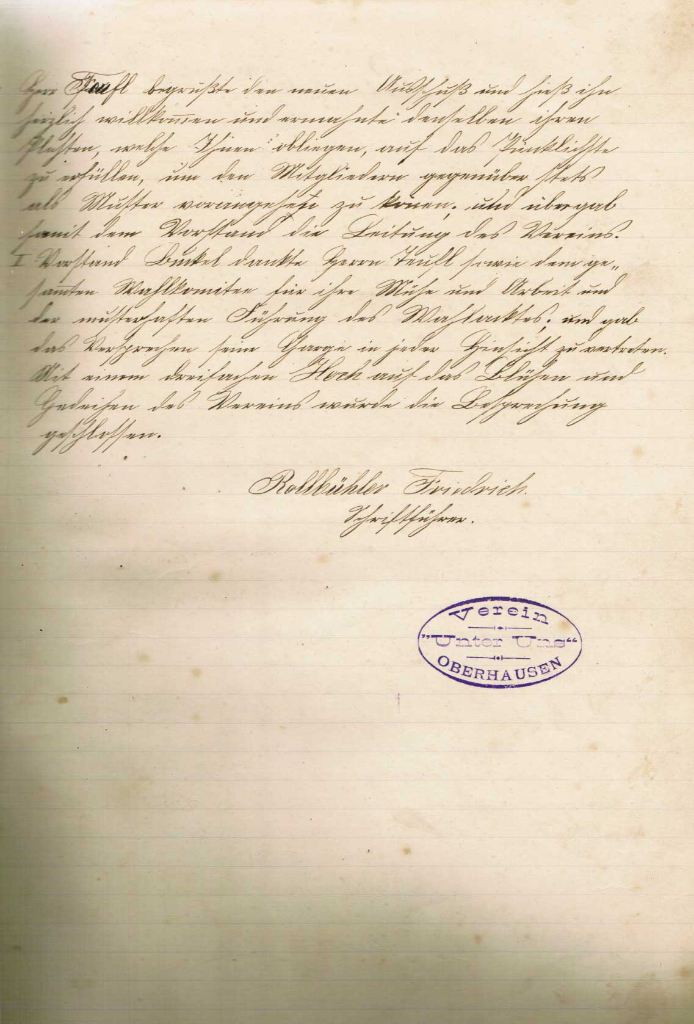 Herr Teufl begrüßte den neuen Ausschuß und hieß ihn
herzlich willkommen und ermahnte denselben ihren
Pflichten, welche Ihnen obliegen, auf das Pünklichste
zu erfüllen, um den Mitgliedern gegenüber stets
als Muster vorangehen zu können; und übergab
somit dem Vorstand die Leitung des Vereins.
I Vorstand Bunkel dankte Herrn Teufl sowie dem ge„
samten Wahlkomitee für ihre Mühe und Arbeit und
der musterhaften Führung des Wahlactes; und gab
das Versprechen seine Garge in jeder Hinsicht zu vertreten.
Mit einem dreifachen Hoch auf das Blühen und
Gedeihen des Vereins wurde die Besprechung
geschlossen.
Rollbühler Friedrich.
Schriftführer.
Verein
"Unter Uns"
OBERHAUSEN